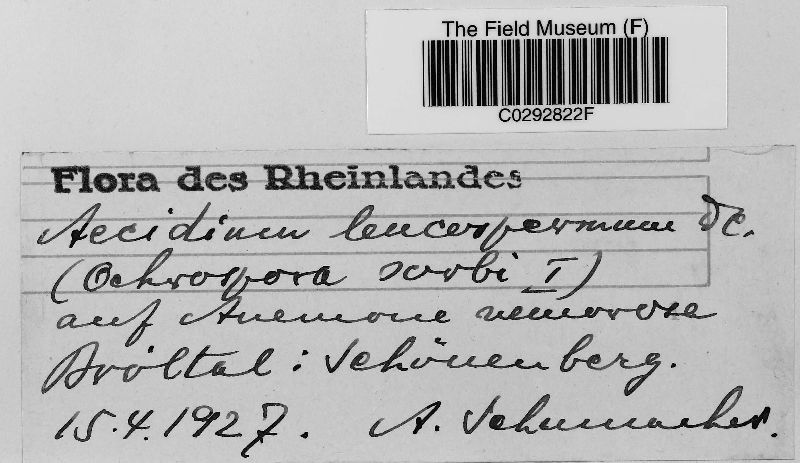 The Field Museum (F)
C0292822F
Flora des Rheinlandes
Aecidium leucospermum DC.
(Ochrospora sorbi I)
auf Anemone nemorosa
Bröltal: Schönenberg.
15.4.1927. A. Schumacher.